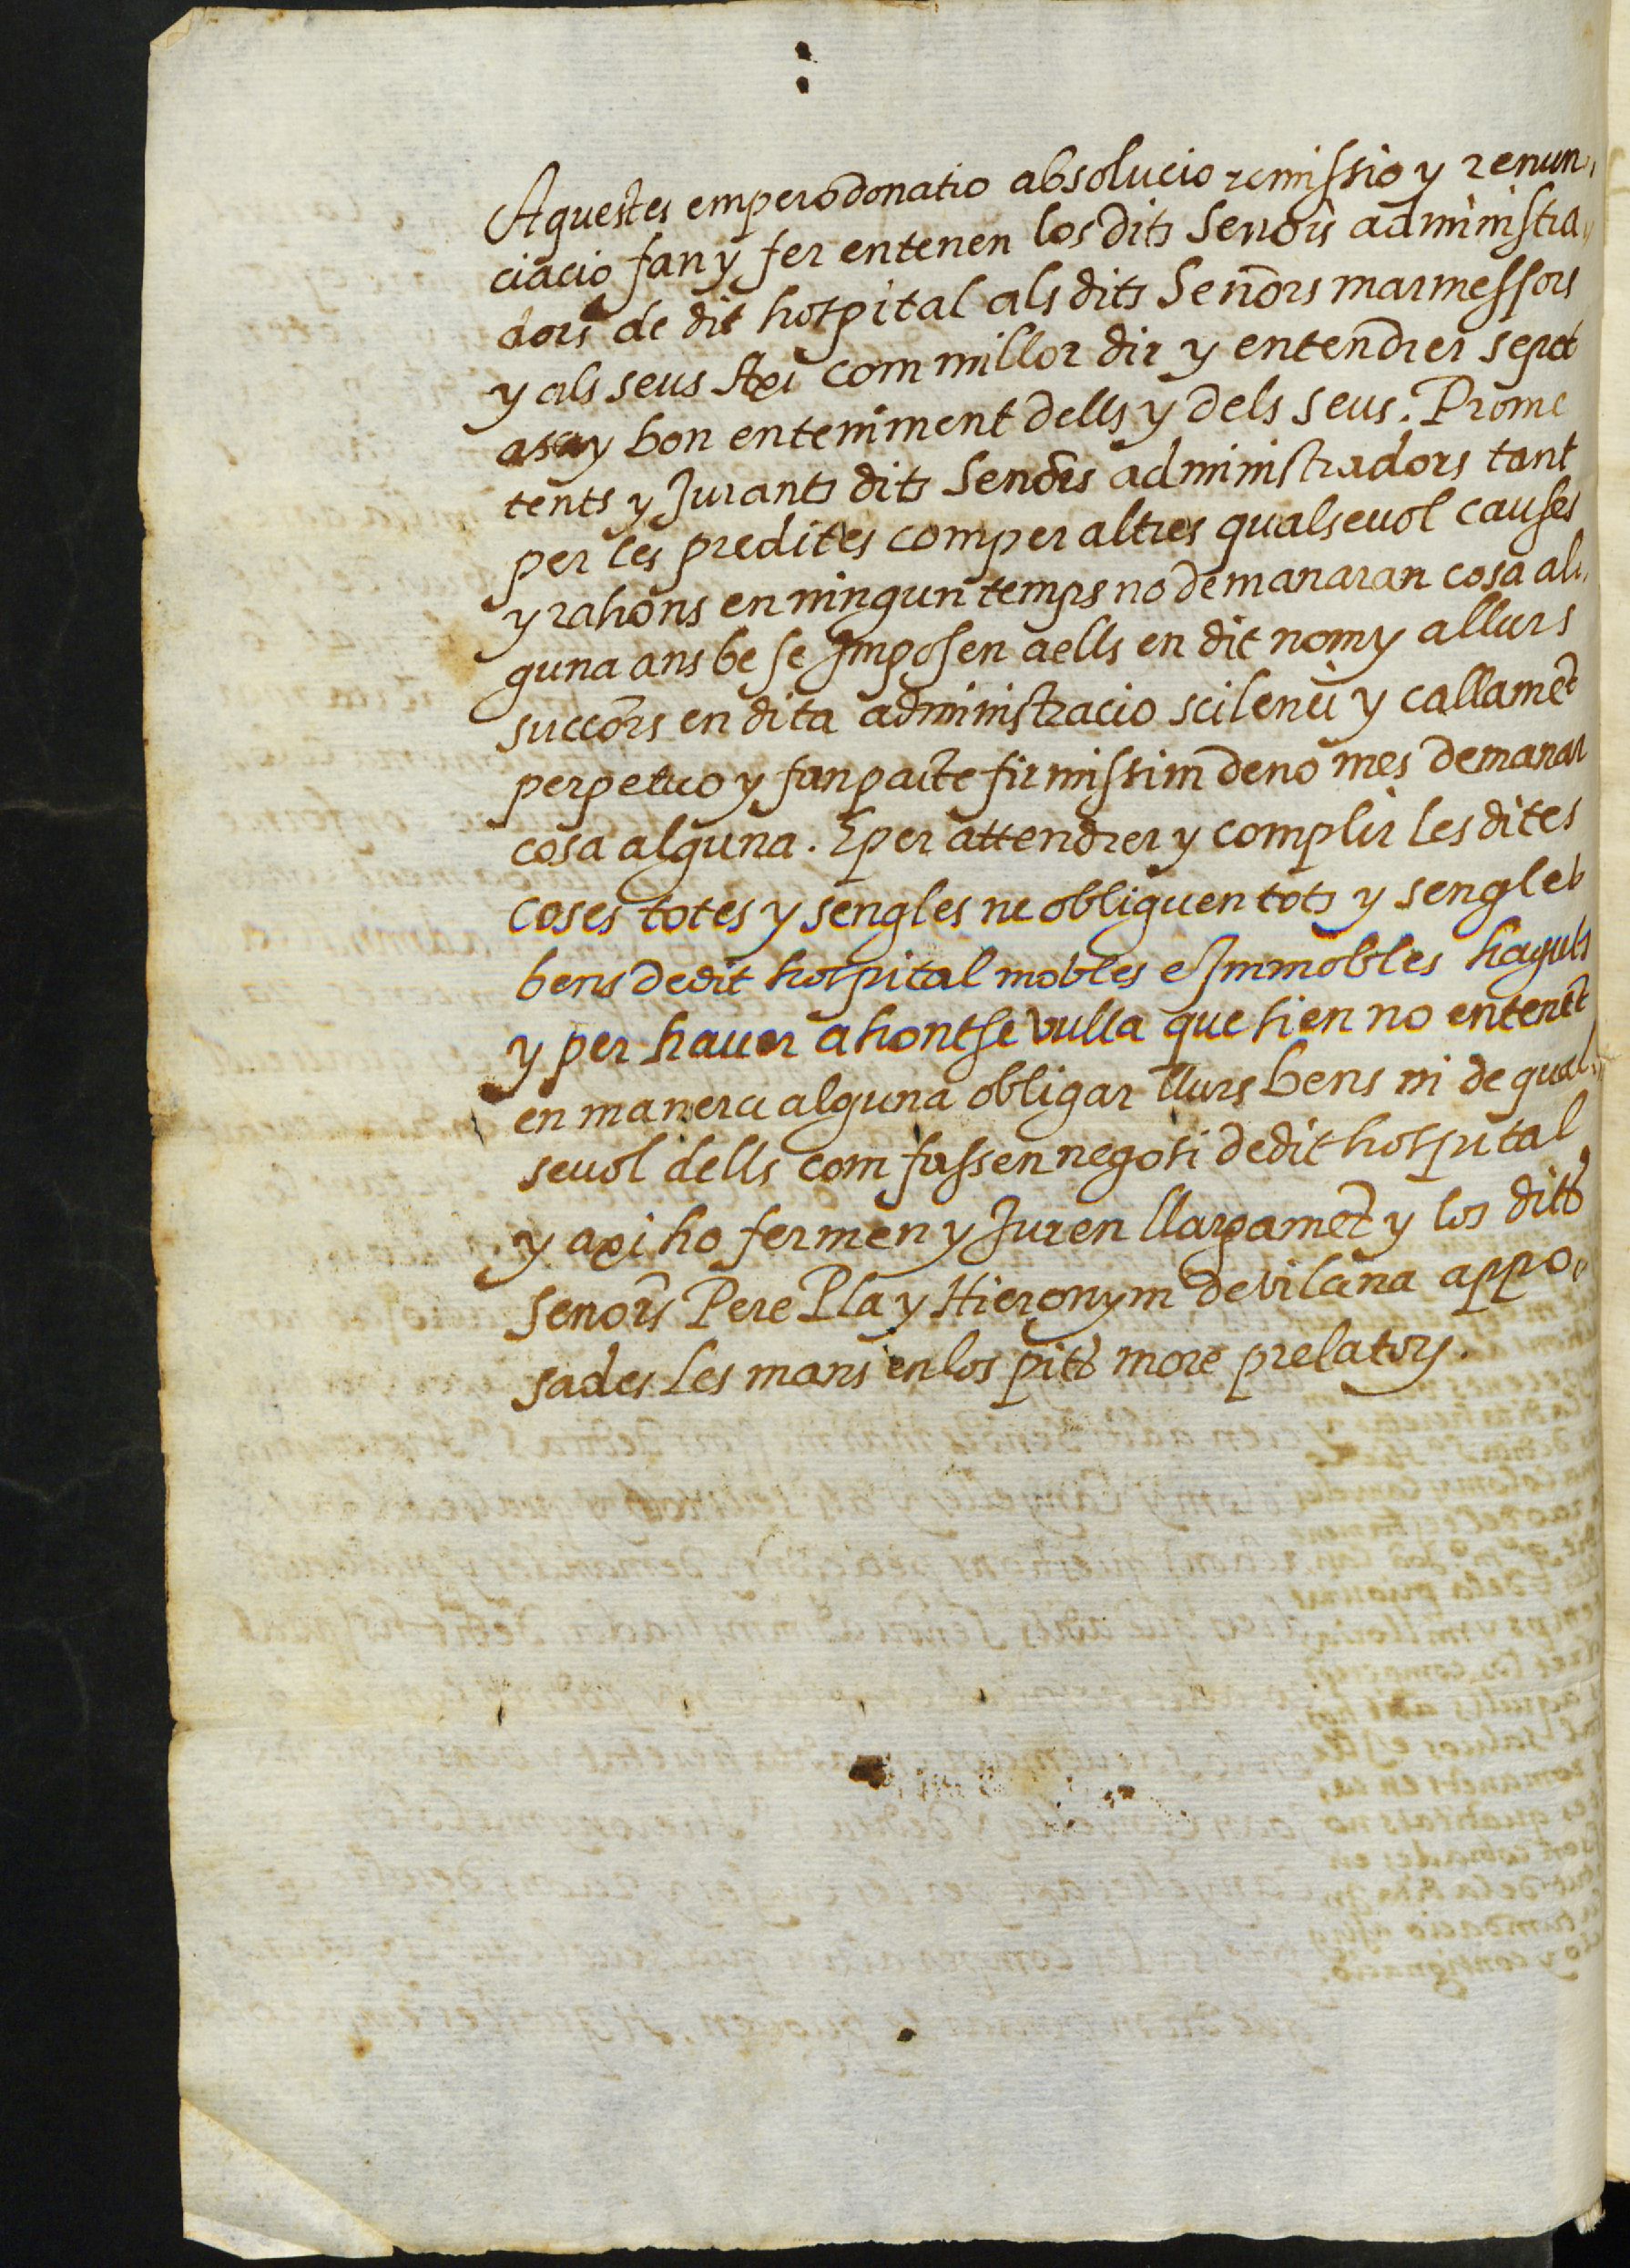 Aquestes empero donatio absolucio remissio y renun,
ciacio fan y fer entenen los dits Senors administra,
dors de dit hospital als dits Senors marmessors
y als seus Axi com millor dir y entendrer se pot
a sa y bon enteniment dells y dels seus. Prome
tents y Jurants dits Senors administradors tant
per les predites com per altres qualseuol causes
y rahons en ningun temps no demanaran cosa al,
guna ans be se Imposen a ells en dit nom y a llurs
succors en dita administracio scilenci y callamet
perpetuo y fan pacte firmissim de no mes demanar
cosa alguna. E per attendrer y complir les dites
coses totes y sengles ne obliguen tots y sengles
bens de dit hospital mobles e Immobles haguts
y per hauer ahont se vulla que sien no entenet
en manera alguna obligar llurs bens ni de qual,
seuol dells com fassen negoti de dit hospital
y axi ho fermen y Juren llargamet y los dits
senors Pere Pla y Hieronym de vilana appo,
sades les mans en los pits more prelatorum.